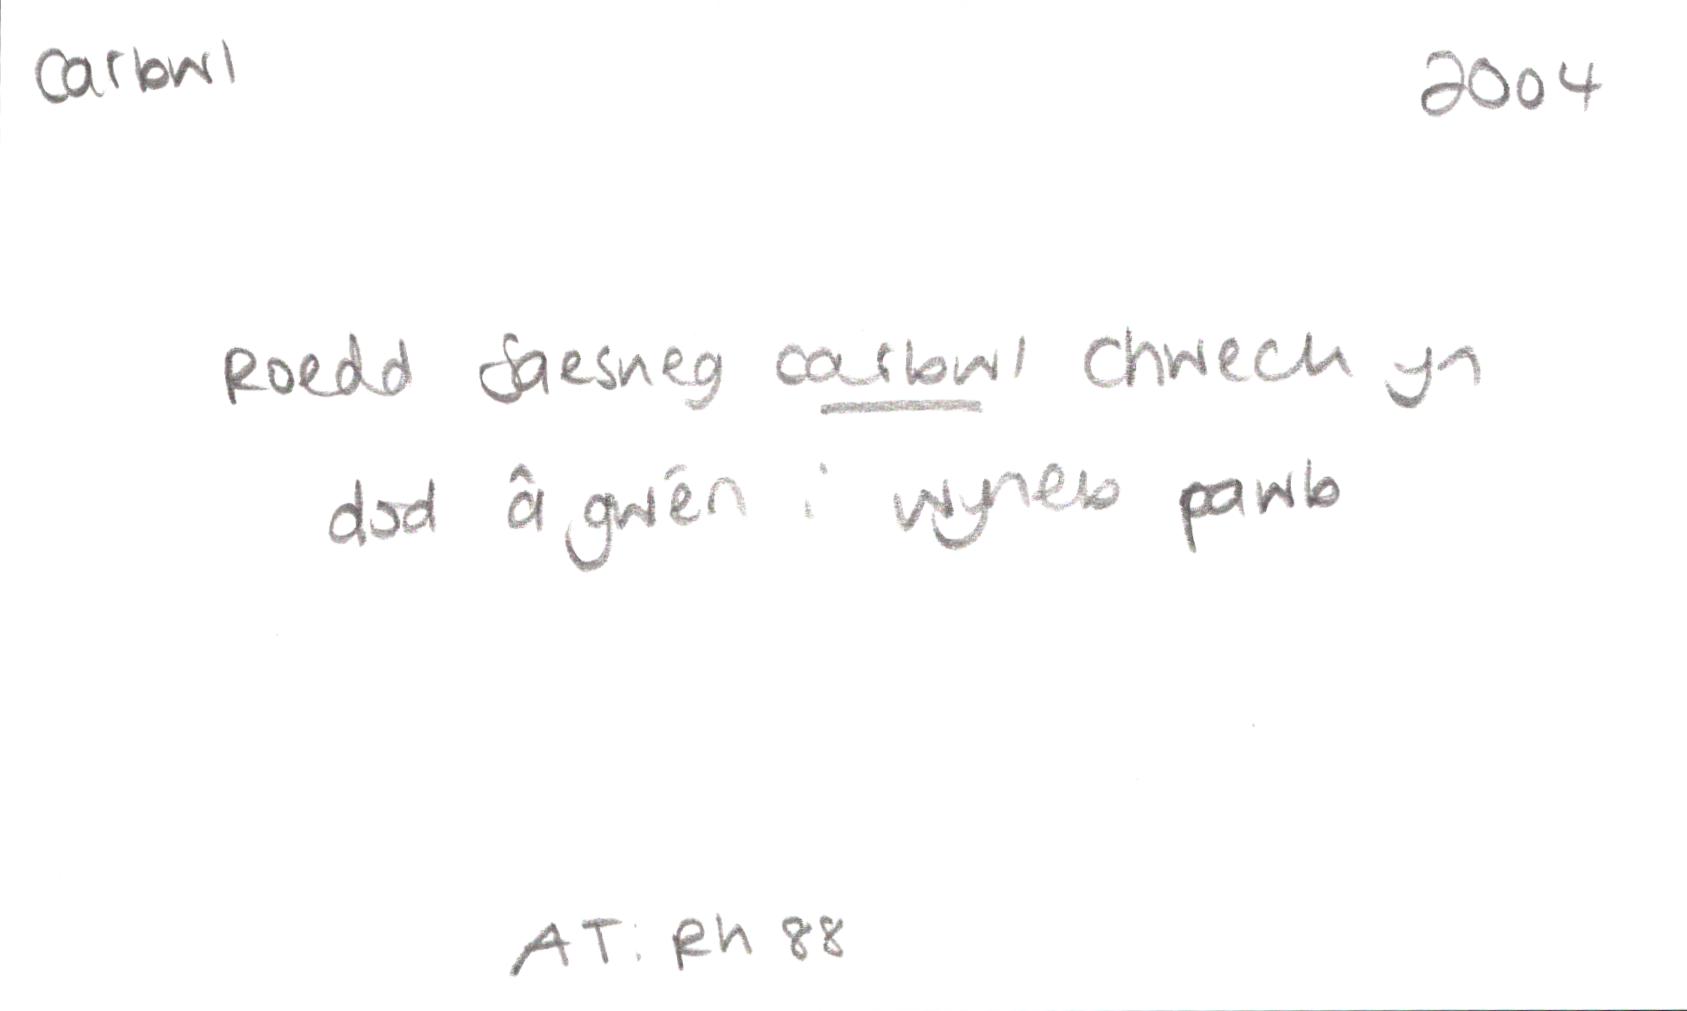 Carbwl 2004
Roedd Saesneg carbwl chwech yn
dod â gwên i wyneb pawb
AT: Rh 88